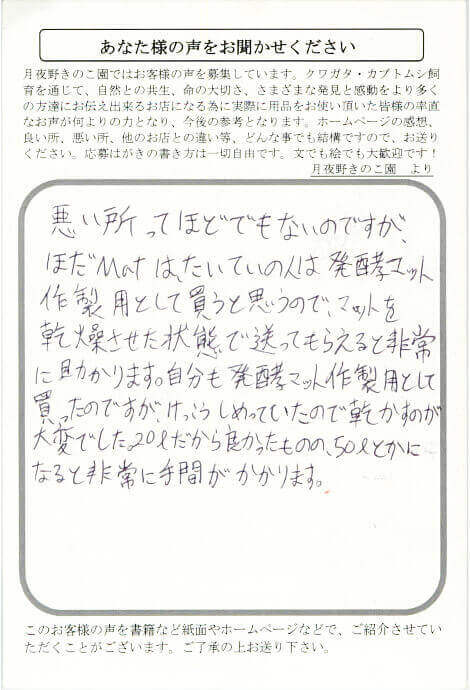 あなた様の声をお聞かせください
月夜野きのこ園ではお客様の声を募集しています。クワガタ・カブトムシ飼
育を通じて、自然との共生、命の大切さ、さまざまな発見と感動をより多く
の方達にお伝え出来るお店になる為に実際に用品をお使い頂いた皆様の率直
なお声が何よりの力となり、今後の参考となります。ホームページの感想、
良い所、悪い所、他のお店との違い等、どんな事でも結構ですので、お送り
ください。応募はがきの書き方は一切自由です。文でも絵でも大歓迎です！
月夜野きのこ園　より
悪い所ってほどでもないのですが、
ほだMatは、たいていの人は発酵マット
作製用として買うと思うので、マットを
乾燥させた状態で送ってもらえると非常
に助かります。自分も発酵マット作製用として
買ったのですが、けっこうしめっていたので乾かすのが
大変でした。20ℓだから良かったものの、50ℓとかに
なると非常に手間がかかります。
このお客様の声を書籍など紙面やホームページなどで、ご紹介させてい
ただくことがございます。ご了承の上お送り下さい。